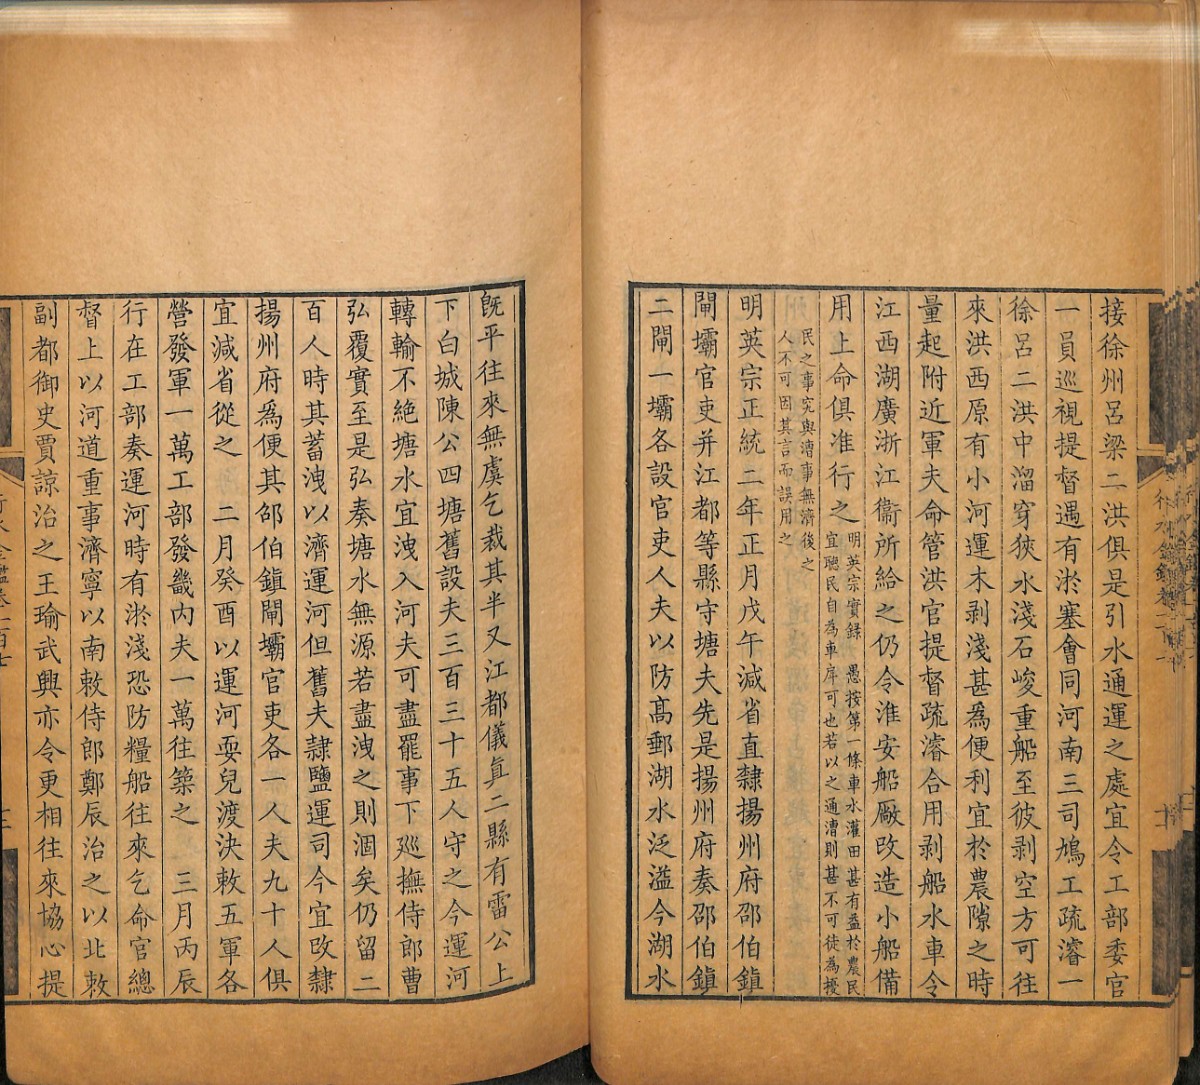 接徐州呂梁二洪俱是引水通運之處宜令工部委官
一員巡視提督遇有淤塞會同河南三司鳩工疏濬一
徐呂二洪中溜穿狹水淺石峻重船至彼剥空方可往
來洪西原有小河運木剥淺甚為便利宜於農隙之時
量起附近軍夫命管洪官提督疏濬合用剥船水車令
江西湖廣浙江衞所給之仍令淮安船厰改造小船備
用上命俱准行之
明英宗實録　愚按第一條車水灌田甚有益於農民
宜聽民自為車戽可也若以之通漕則甚不可徒為擾
民之事究與漕事無濟後之
人不可因其言而誤用之
明英宗正統二年正月戊午減省直隸揚州府邵伯鎮
閘壩官吏并江都等縣守塘夫先是揚州府奏邵伯鎮
二閘一壩各設官吏人夫以防髙郵湖水泛溢今湖水
既平往來無虞乞裁其半又江都儀真二縣有雷公上
下白城陳公四塘舊設夫三百三十五人守之今運河
轉輸不絶塘水宜洩入河夫可盡罷事下廵撫侍郎曹
弘覆實至是弘奏塘水無源若盡洩之則涸矣仍留二
百人時其蓄洩以濟運河但舊夫隸鹽運司今宜改隸
揚州府為便其邵伯鎮閘壩官吏各一人夫九十人俱
宜減省從之　二月癸酉以運河耍兒渡決敕五軍各
營發軍一萬工部發畿内夫一萬往築之　三月丙辰
行在工部奏運河時有淤淺恐防糧船往來乞命官總
督上以河道重事濟寧以南敕侍郎鄭辰治之以北敕
副都御史賈諒治之王瑜武興亦令更相往來協心提
行水金鑑卷一百七